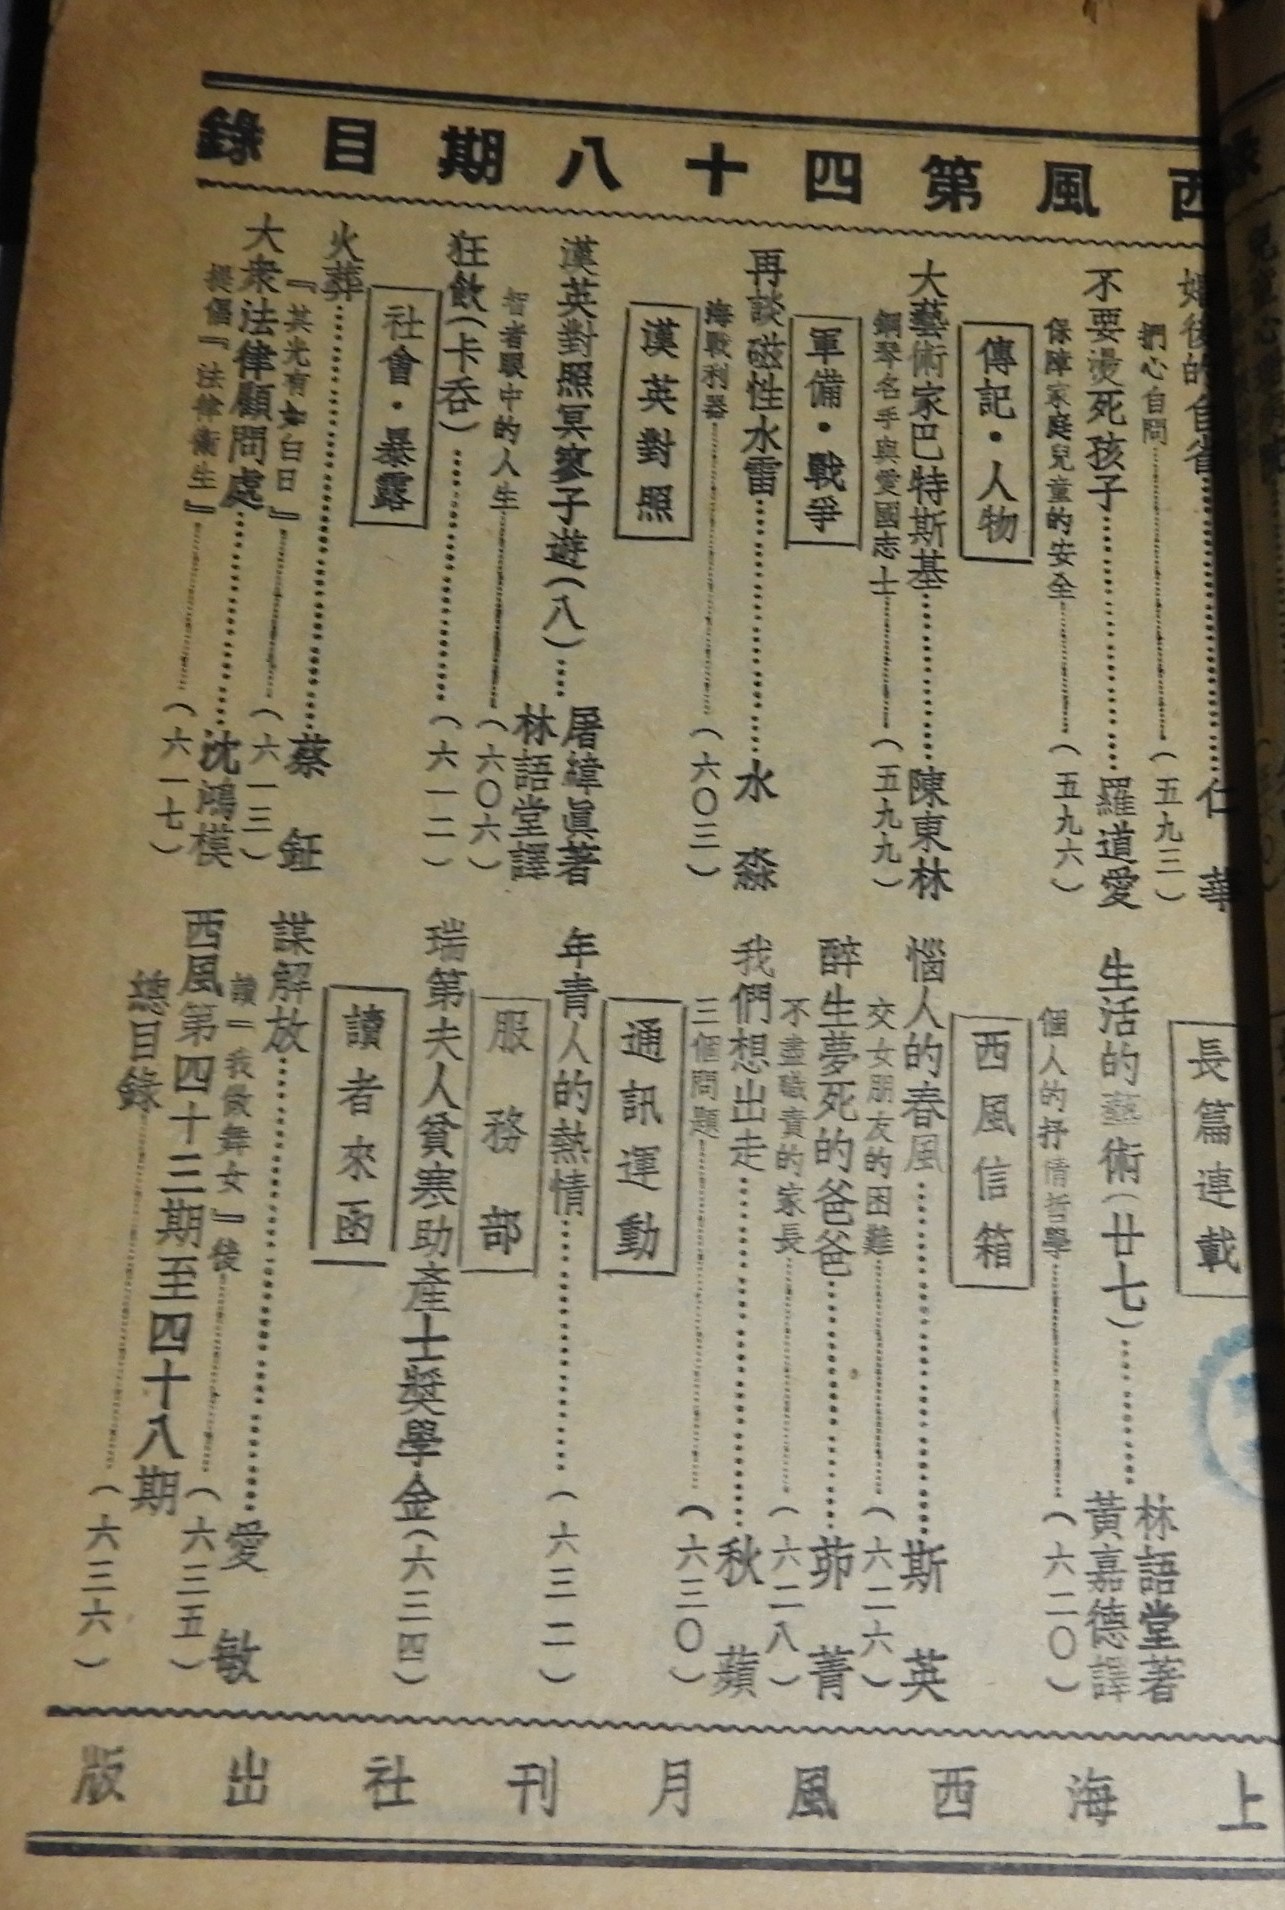 西風第四十八期目錄
婚後的自省 仁華
捫心自問 (五九三)
不要燙死孩子 羅道愛
保障家庭兒童的安全 (五九六)
傳記・人物
大藝術家巴特斯基 陳東林
鋼琴名手與愛國志士 (五九九)
軍備・戰爭
再談磁性水雷 水淼
海戰利器 (六〇三)
漢英對照
漢英對照冥寥子遊(八) 屠緯眞著
林語堂譯
智者眼中的人生 (六〇六)
狂飲(卡吞) (六一二)
社會・暴露
火葬 蔡鉦
『其光有如白日』 (六一三)
大衆法律顧問處 沈鴻模
提倡『法律衛生』 (六一七)
長篇連載
生活的藝術(廿七) 林語堂著
黃嘉德譯
個人的抒情哲學 (六二〇)
西風信箱
惱人的春風 斯英
交女朋友的困難 (六二六)
醉生夢死的爸爸 茆菁
不盡職責的家長 (六二八)
我們想出走 秋蘋
三個問題 (六三〇)
通訊運動
年青人的熱情 (六三二)
服務部
瑞第夫人貧寒助產士獎學金(六三四)
讀者來函
謀解放 愛敏
讀『我做舞女』後 (六三五)
西風第四十三期至四十八期
總目錄 (六三六)
上海西風月刊社出版